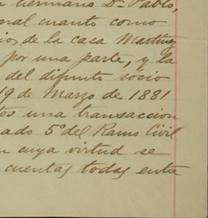 hermano Dn Pablo,
cuanto como
de la casa Martinez
por una parte, y la
del difunto socio
19 de Marzo de 1881
una transaccion
5º del Ramo Civil
cuya virtud se
cuentas todas entre